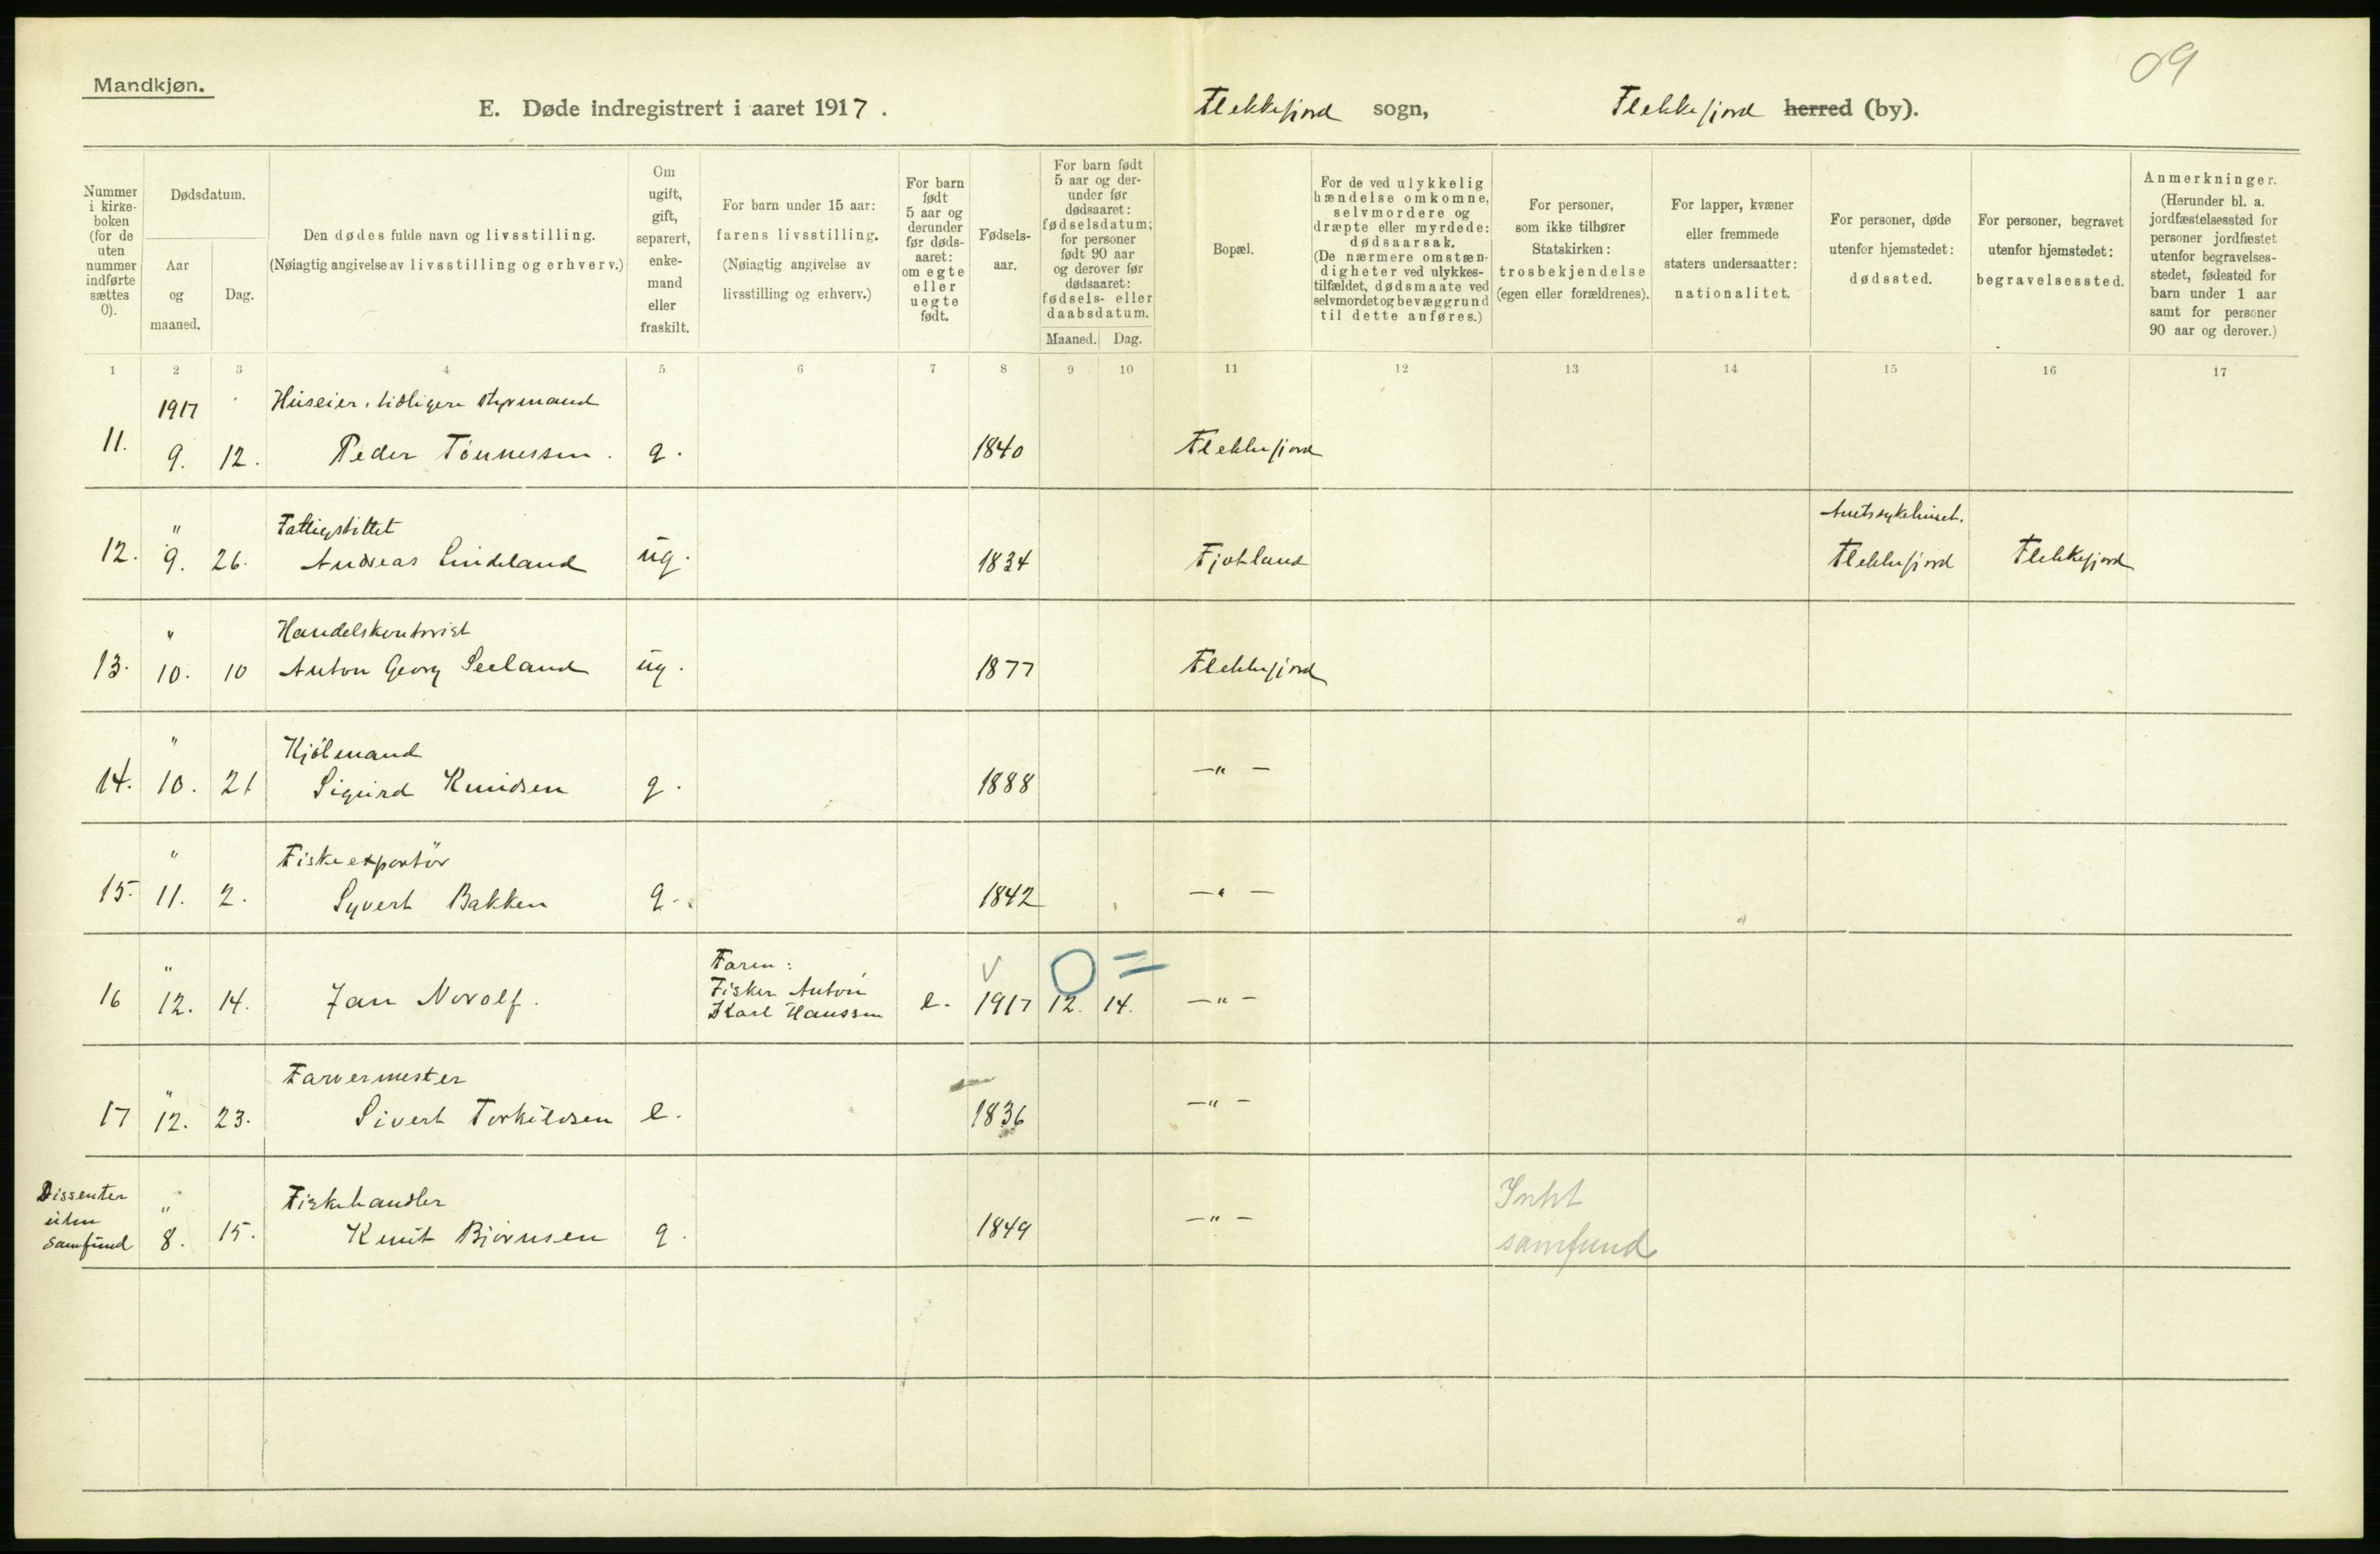 09
Mandkjøn.
E. Døde indregistrert i aaret 1917.
Flekkefjord sogn,
Flekkefjord herred (by).
Nummer i kirke-boken (for de uten nummer indførte sættes 0).
Dødsdatum.
Aar og maaned.
Dag.
Den dødes fulde navn og livsstilling.
(Nøiagtig angivelse av livsstilling og erhverv.)
Om ugift, gift, separert, enke-mand eller fraskilt.
For barn under 15 aar:
farens livsstilling.
(Nøiagtig angivelse av
livsstilling og erhverv.)
For barn født 5 aar og derunder før døds-aaret: om egte eller uegte født.
Fødsels-aar.
For barn født 5 aar og der-under før dødsaaret: fødselsdatum; for personer født 90 aar og derover før dødsaaret: fødsels- eller daabsdatum.
Maaned.
Dag.
Bopæl.
For de ved ulykkelig hændelse omkomne, selvmordere og dræpte eller myrdede: dødsaarsak.
(De nærmere omstæn-digheter ved ulykkes-tilfældet, dødsmaate ved selvmordet og bevæggrund til dette anføres.)
For personer, som ikke tilhører Statskirken: trosbekjendelse (egen eller forældrenes).
For lapper, kvæner eller fremmede staters undersaatter: nationalitet.
For personer, døde utenfor hjemstedet: dødssted.
For personer, begravet utenfor hjemstedet: begravelsessted.
Anmerkninger.
(Herunder bl. a. jordfæstelsessted for personer jordfæstet utenfor begravelses-stedet, fødested for barn under 1 aar samt for personer 90 aar og derover.)
1 2 3 4 5 6 7 8 9 10 11 12 13 14 15 16 17
1917 Huseier, tidligere styrmand
11. 9. 12. Peder Tönnessen. g. 1840 Flekkefjord
" Fattigstittet Amtssykehuset.
12. 9. 26. Andreas Lindeland ug. 1834 Fjotland Flekkefjord Flekkefjord
" Handelskontorist
13. 10. 10 Anton Georg Seeland ug. 1877 Flekkefjord
" Kjölmand
14. 10. 21 Sigurd Knudsen g. 1888 —"—
" Fiskeexportör
15. 11. 2. Syvert Bakken g. 1842 —"—
" Faren: V 0 =
Fisker Anton
16 12. 14. Jan Norolf. Karl Hanssen e. 1917 12. 14. —"—
" Farvermester
17 12. 23. Sivert Torkildsen e. 1836 —"—
Dissenter uten samfund " Fiskehandler
8. 15. Knut Bjørnsen g. 1849 —"— Intet samfund